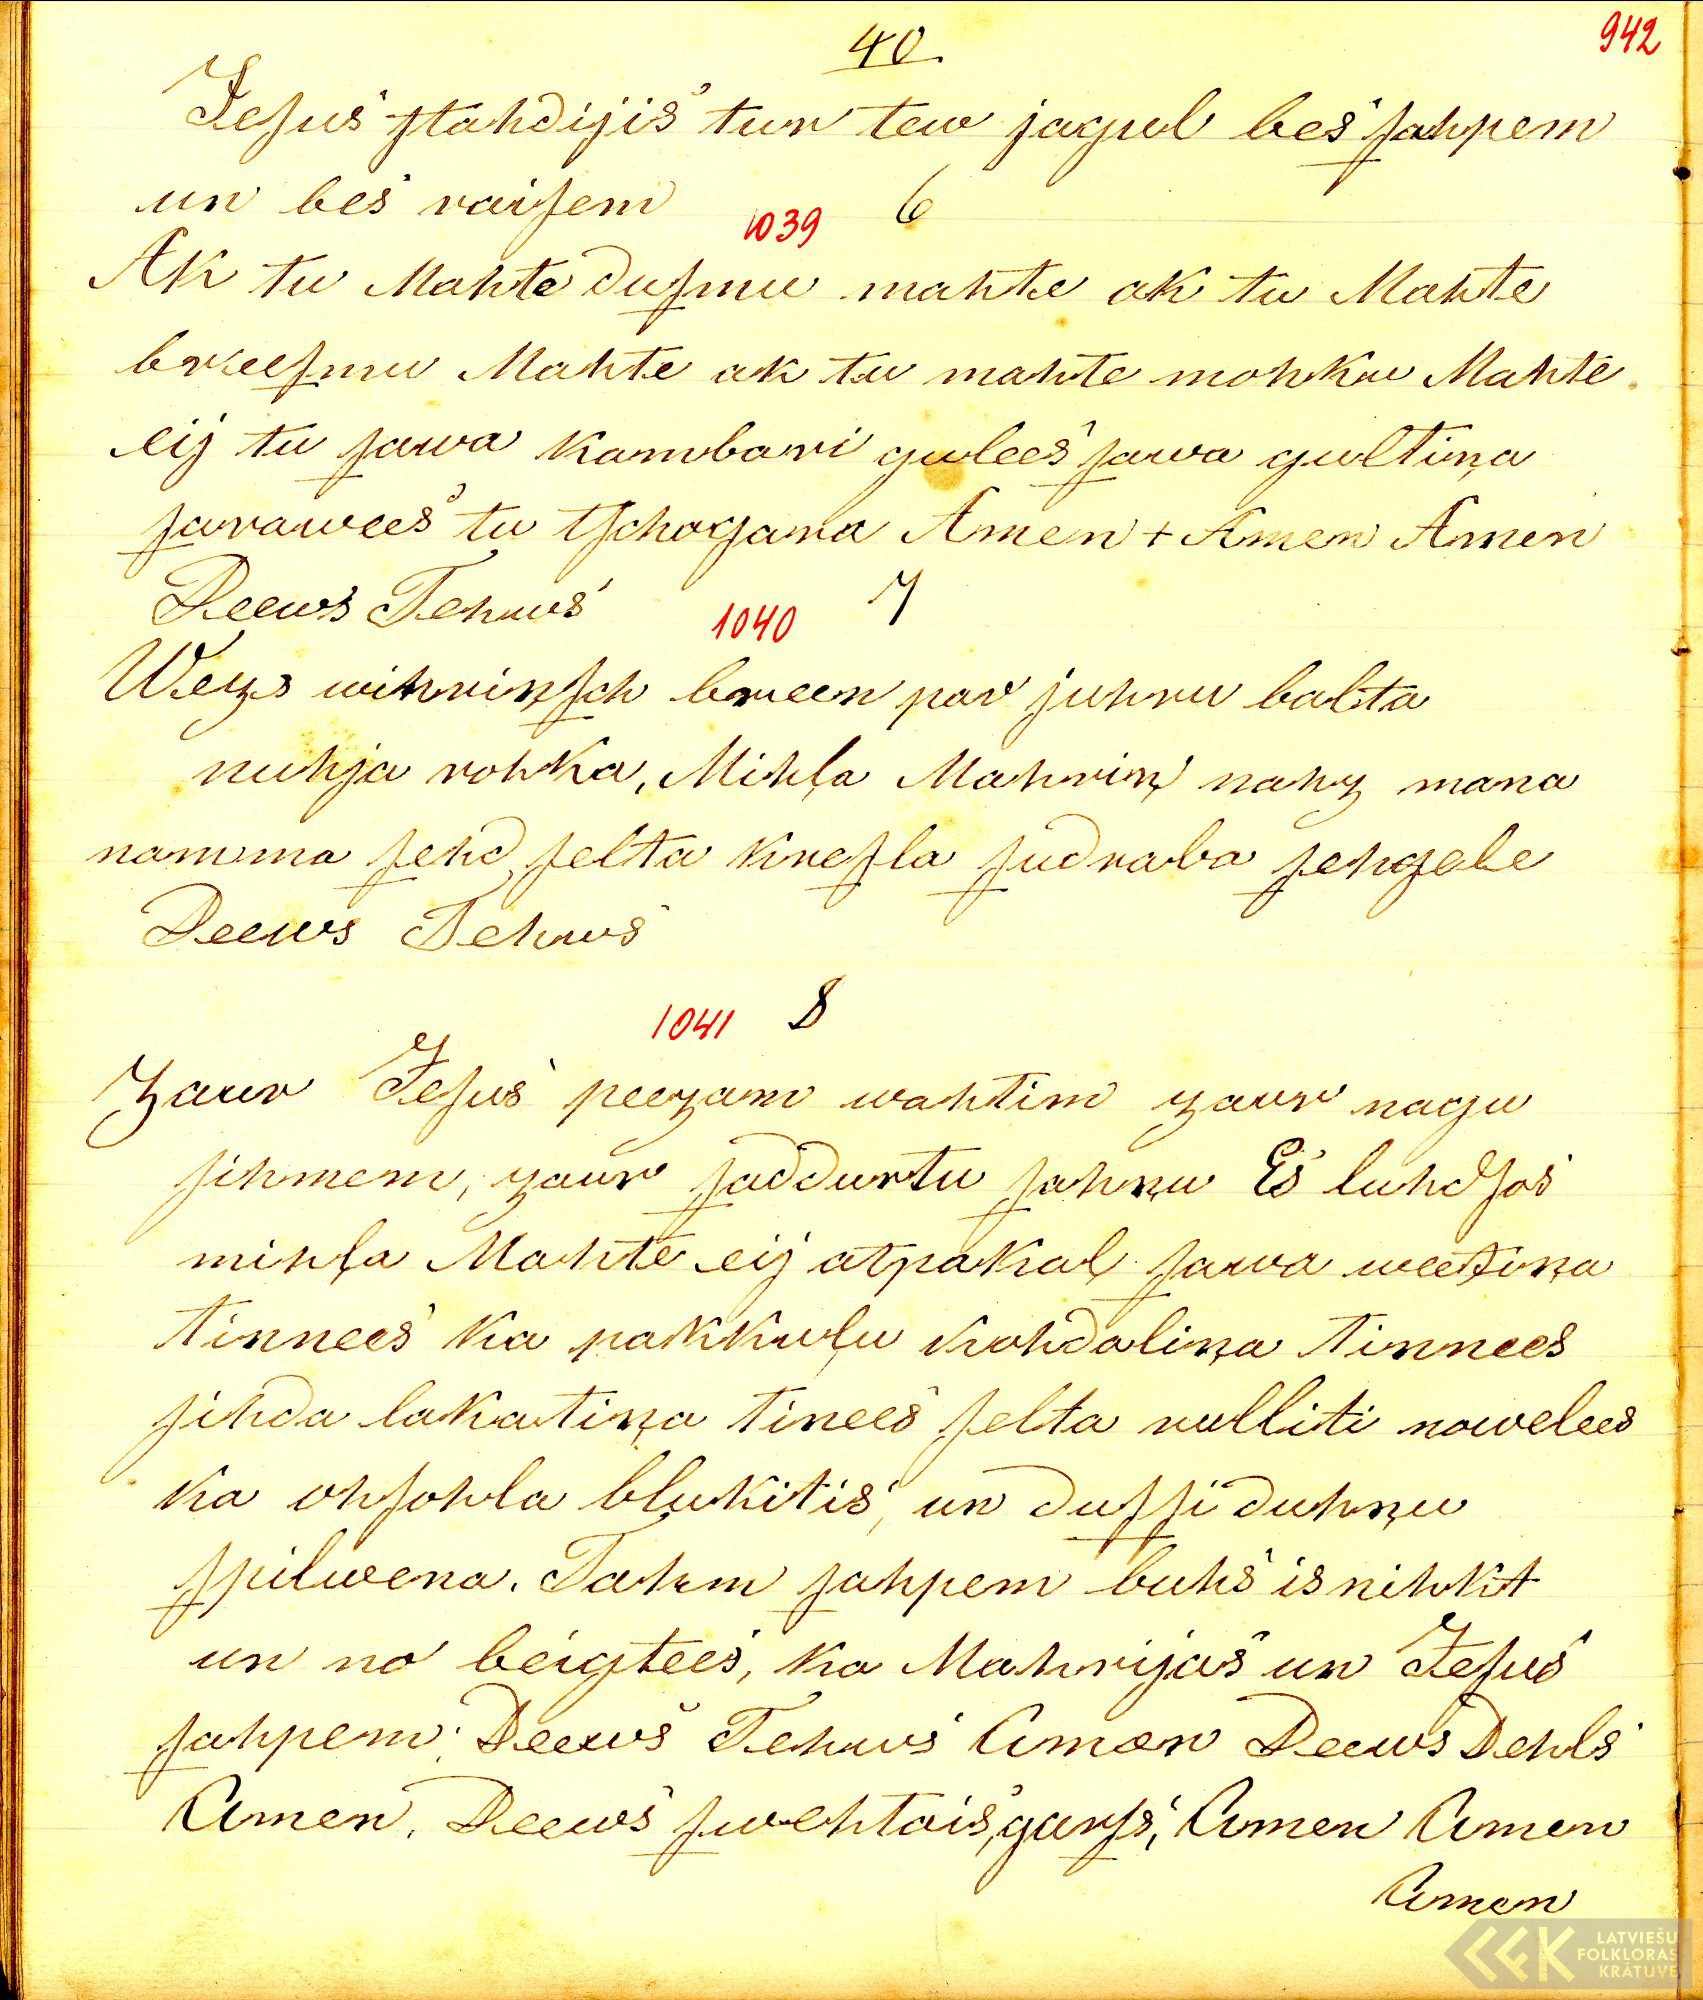 40.
942
Jeſus ſtahdijis tur tew jagul bes ſahpem
un bes raiſem
1039 6
Ak tu Mahte duſmu mahte ak tu Mahte
breeſmu Mahte ak tu mahte mohku Mahte.
eij tu ſawa kambari gulees ſawa gultiņa
ſarawees tu tſchogana Amen + Amen Amen
Deews Tehws
1040 7
Wezs wihriņſch breen par juhru balta
nuhja rohka, Mihļa Mahriņ nahz mana
namma ſehd ſelta kreſla ſudraba ſehgele
Deews Tehws
1041 8
Zaur Jeſus peezam wahtim zaur nagu
ſihmem, zaur ſaddurtu ſahņu Es luhdſos
mihļa Mahte eij atpakaļ ſawa weetiņa
tinnees ka pakkuļu kohdaliņa tinnees
ſihda lakatiņa tinees ſelta rulliti nowelees
ka ohſohla blukitis, un duſſi duhņu
ſpilwena. Tahm ſahpem buhs isnihkt
un no beigtees, ka Mahrijas un Jeſus
ſahpem. Deews Tehws Amen Deews Dehls
Amen. Deews ſwehtais, garſs, Amen Amen
Amen
LATVIEŠU
FOLKLORAS
KRĀTUVE